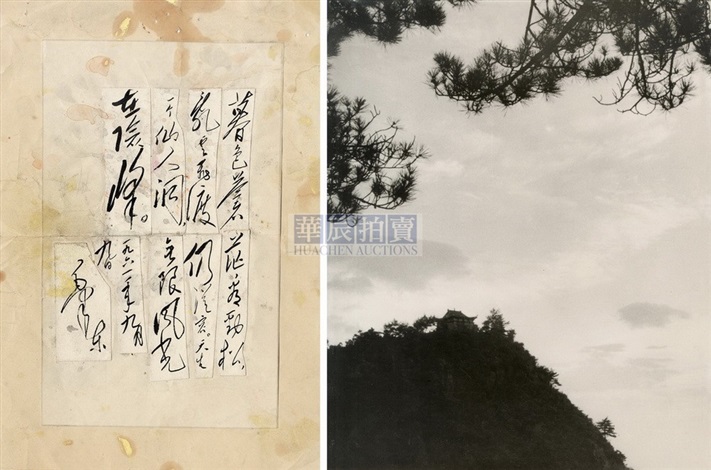 暮色蒼茫看勁松,
亂云飛渡仍從容。天生
一个仙人洞,無限風光
在險峰。
一九六一年九月
九日
毛泽东
華辰拍賣
HUACHEN AUCTIONS